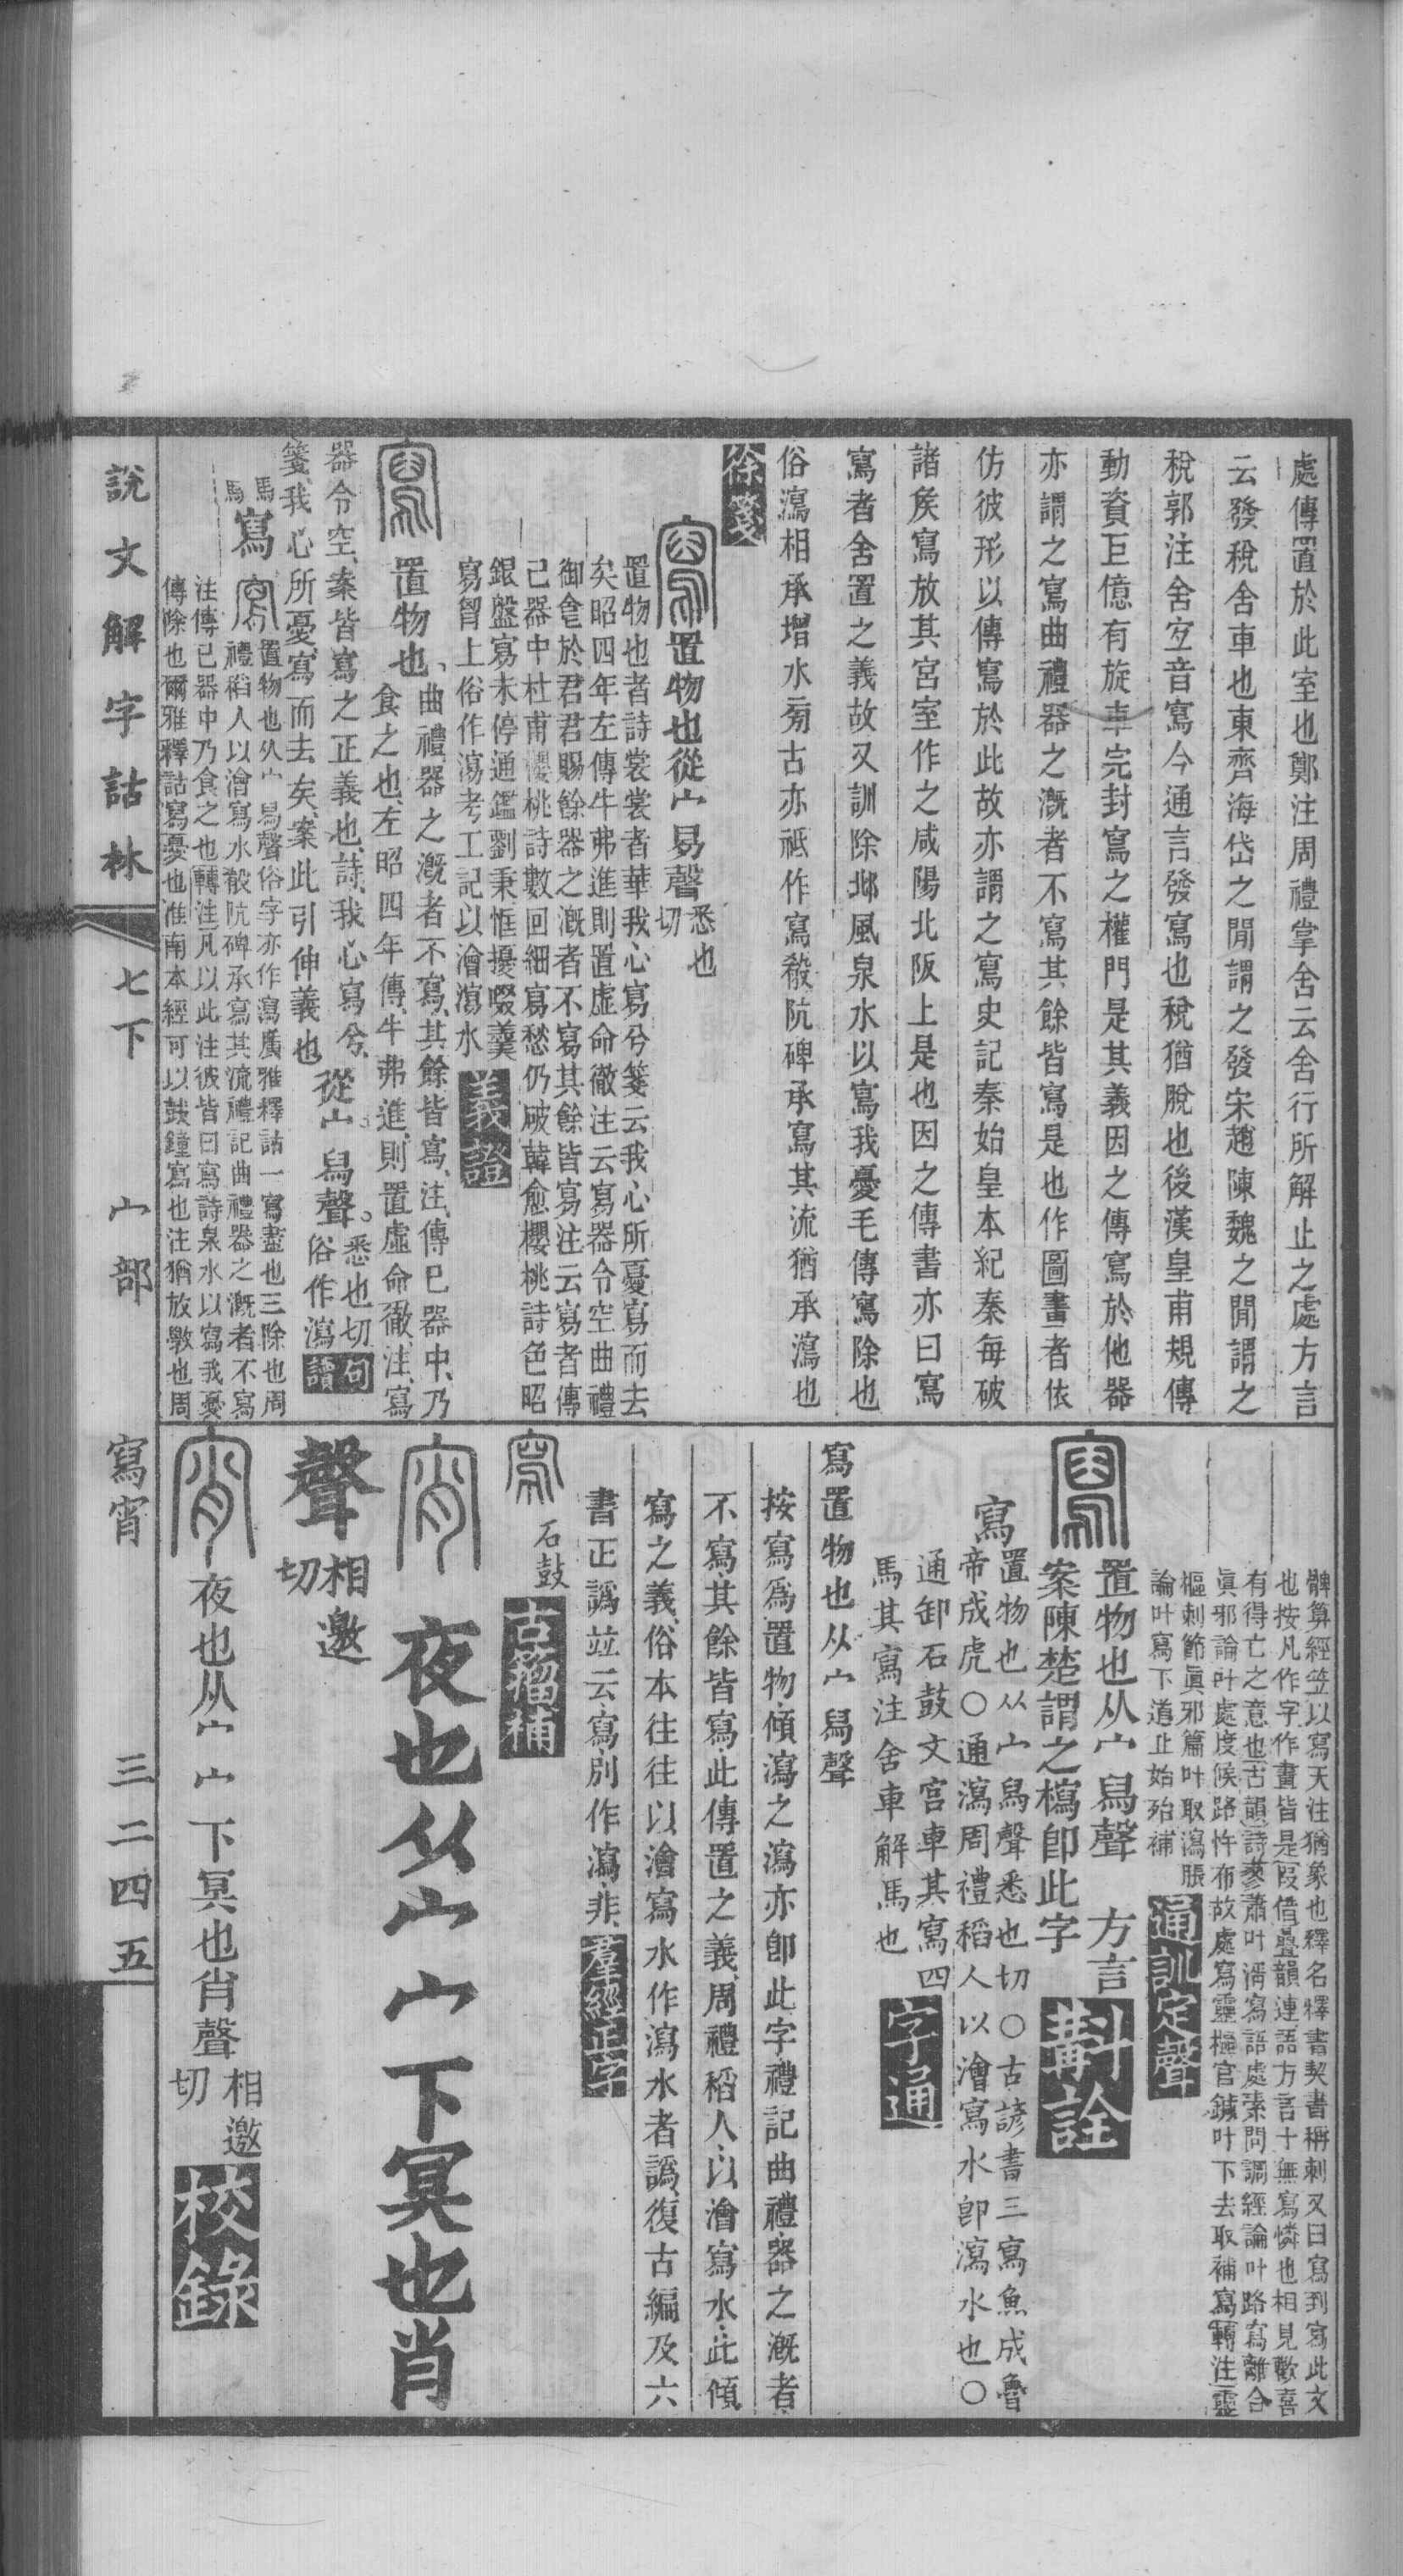 處傳置於此室也鄭注周禮掌舍云舍行所解止之處方言
云發稅舍車也東齊海岱之閒謂之發宋趙陳魏之閒謂之
稅郭注舍宐音寫今通言發寫也稅猶脫也後漢皇甫規傳
動資巨億有旋車完封寫之權門是其義因之傳寫於他器
亦謂之寫曲禮器之溉者不寫其餘皆寫是也作圖畫者依
仿彼形以傳寫於此故亦謂之寫史記秦始皇本紀秦每破
諸矦寫放其宮室作之咸陽北阪上是也因之傳書亦曰寫
寫者舍置之義故又訓除邶風泉水以寫我憂毛傳寫除也
俗瀉相承增水㫄古亦祗作寫殽阬碑承寫其流猶承瀉也
徐箋
置物也從宀舄聲悉也切
置物也者詩裳裳者華我心寫兮箋云我心所憂寫而去
矣昭四年左傳牛弗進則置虛命徹注云寫器令空曲禮
御食於君君賜餘器之溉者不寫其餘皆寫注云寫者傳
已器中杜甫櫻桃詩數回細寫愁仍破韓愈櫻桃詩色昭
銀盤寫未停通鑑劉秉恇擾啜羹
寫胷上俗作瀉考工記以澮瀉水義證
置物也、曲禮、器之溉者不寫、其餘皆寫、注、傳已器中、乃
食之也、左昭四年傳、牛弗進、則置虛命徹、注、寫
器令空、案皆寫之正義也、詩、我心寫兮、
箋、我心所憂、寫而去矣、案此引伸義也從宀。舄聲。悉也切俗作瀉句讀
寫置物也从宀舄聲俗字亦作瀉廣雅釋詁一寫盡也三除也周
禮稻人以澮寫水殽阬碑承寫其流禮記曲禮器之溉者不寫
注傳已器中乃食之也轉注凡以此注彼皆曰寫詩泉水以寫我憂
傳除也爾雅釋詁寫憂也淮南本經可以鼓鐘寫也注猶放斆也周
說文解字詁林 七下 宀部 寫宵 三二四五
髀算經笠以寫天注猶象也釋名釋書契書稱刺又曰寫到寫此文
也按凡作字作畫皆是叚借疊韻連語方言十無寫憐也相見歡喜
有得亡之意也古韻詩蓼蕭叶湑寫語處素問調經論叶路寫離合
眞邪論叶處度候路忤布故處寫靈樞官鍼叶下去取補寫轉注靈
樞刺節眞邪篇叶取瀉脹
論叶寫下道止始殆補通訓定聲
置物也从宀舄聲 方言
案陳楚謂之㩼卽此字斠詮
寫置物也从宀舄聲悉也切○古諺書三寫魚成魯
帝成虎○通瀉周禮稻人以澮寫水卽瀉水也○
通卸石鼓文宮車其寫四
馬其寫注舍車解馬也字通
寫置物也从宀舄聲
按寫爲置物傾瀉之瀉亦卽此字禮記曲禮器之溉者
不寫其餘皆寫此傳置之義周禮稻人以澮寫水此傾
寫之義俗本往往以澮寫水作瀉水者譌復古編及六
書正譌竝云寫別作瀉非羣經正字
石鼓古籀補
夜也从宀宀下冥也肖
聲相邀切
夜也从宀宀下冥也肖聲相邀切校錄